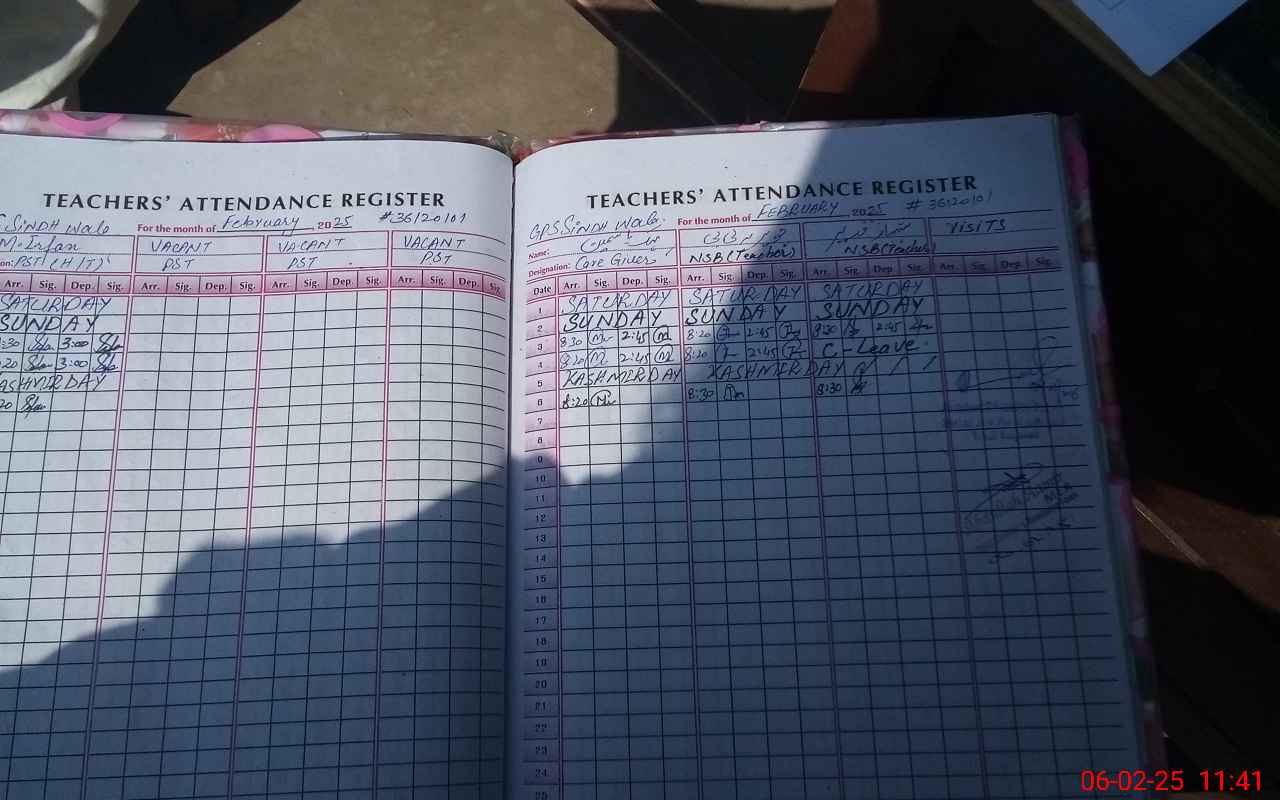 TEACHERS' ATTENDANCE REGISTER
SINDH wala For the month of February 2025 #36120101
M. Irfan VACANT VACANT VACANT
PST (H/T) PST PST PST
Arr. Sig. Dep. Sig. Arr. Sig. Dep. Sig. Arr. Sig. Dep. Sig. Arr. Sig. Dep. Sig.
SATURDAY
SUNDAY
:30 3:00
:20 3:00
KASHMERDAY
20
TEACHERS' ATTENDANCE REGISTER
GPS Sindh wala For the month of FEBRUARY 2025 # 36120101
Name: VISITS
Designation: Care Giver NSB (Teacher) NSB (Teacher)
Date Arr. Sig. Dep. Sig. Arr. Sig. Dep. Sig. Arr. Sig. Dep. Sig. Arr. Sig. Dep. Sig.
1 SATURDAY SATURDAY SATURDAY
2 SUNDAY SUNDAY SUNDAY
3 8:30 2:45 8:20 2:45 8:30 2:45
4 8:20 2:45 8:20 2:45 C-Leave
5 KASHMERDAY KASHMERDAY
6 8:20 8:30 8:30
7
8
9
10
11
12
13
14
15
16
17
18
19
20
21
22
23
24
25
06-02-25 11:41